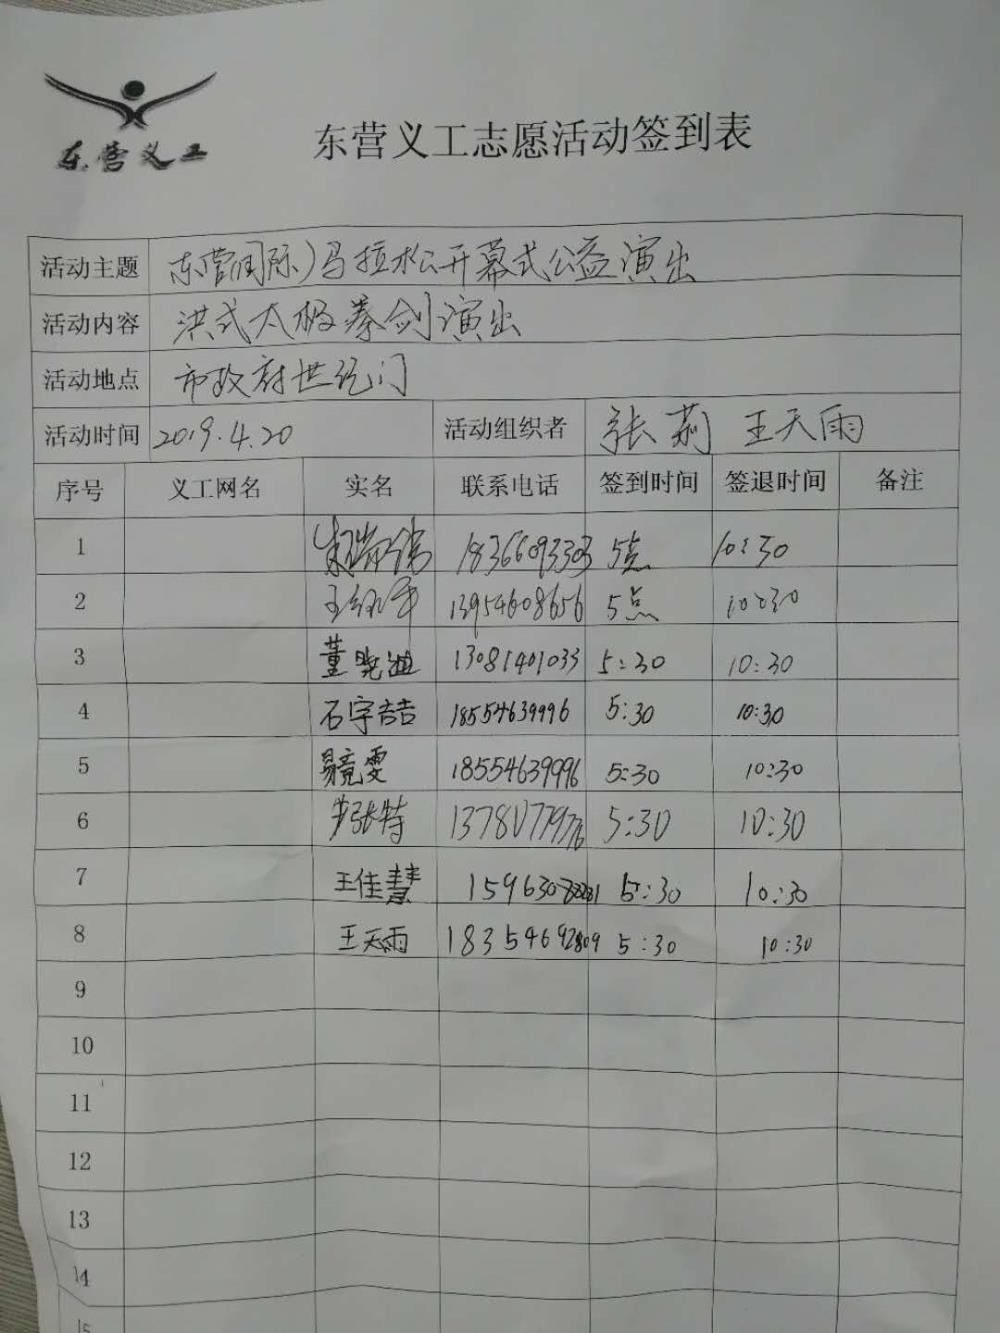 东营义工
东营义工志愿活动签到表
活动主题 东营国际马拉松开幕式公益演出
活动内容 洪式太极拳剑演出
活动地点 市政府世纪门
活动时间 2019.4.20 活动组织者 张莉 王天雨
序号 义工网名 实名 联系电话 签到时间 签退时间 备注
1 18366093303 5点 10:30
2 13954608656 5点 10:30
3 董晓迪 13081401033 5:30 10:30
4 石宇喆 18554639996 5:30 10:30
5 18554639996 5:30 10:30
6 5:30 10:30
7 王佳慧 5:30 10:30
8 王天雨 18354692809 5:30 10:30
9
10
11
12
13
14
15